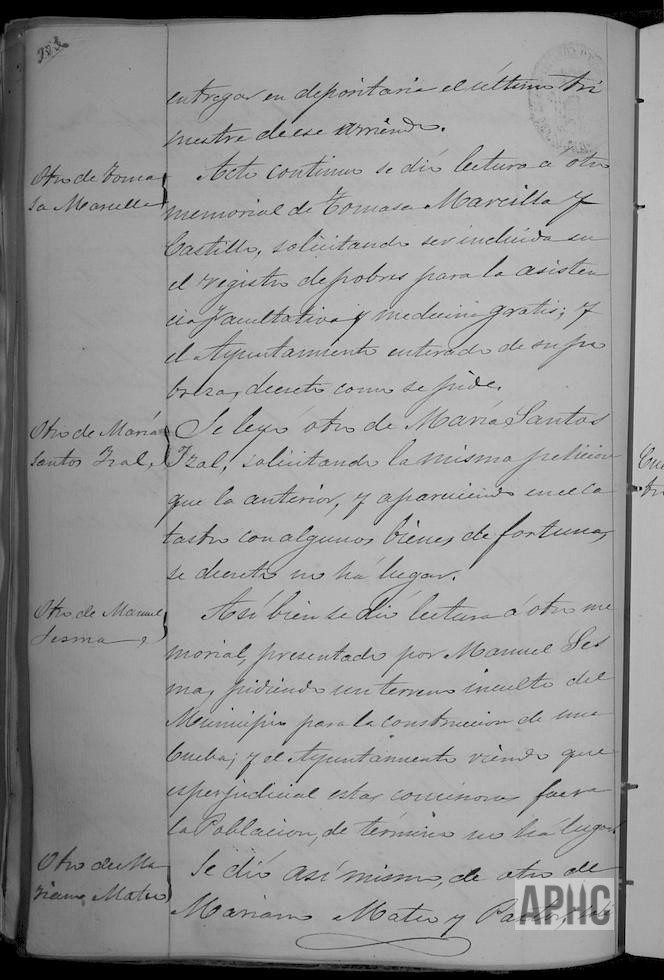 entregar en depositaria el último tri
mestre de ese arriendo.
Otro de Toma
sa Marcilla
Acto continuo se dió lectura a ótro
memorial de Tomasa Marcilla y
Castillo, solicitando ser incluida en
el registro de pobres para la asisten
cia facultativa y medicina gratis; y
el Ayuntamiento enterado de su po
breza, decretó como se pide.
Otro de María
Santos Yzal,
Se leyó ótro de María Santos
Yzal, solicitando la misma peticion
que la anterior, y apareciendo en el ca
tastro con algunos bienes de fortuna,
se decretó no há lugar.
Otro de Manuel
Sesma,
Así bien se dió lectura á otro me
morial, presentado por Manuel Ses
ma, pidiendo un terreno inculto del
Municipio para la construccion de una
Cueba; y el Ayuntamiento viendo que
es perjudicial estar cominora fuera
la Poblacion, determino no há lugar.
Otro de Ma
riano Mateo
Se dió así mismo, de otro de
Mariano Mateo y Pastor,
APHC